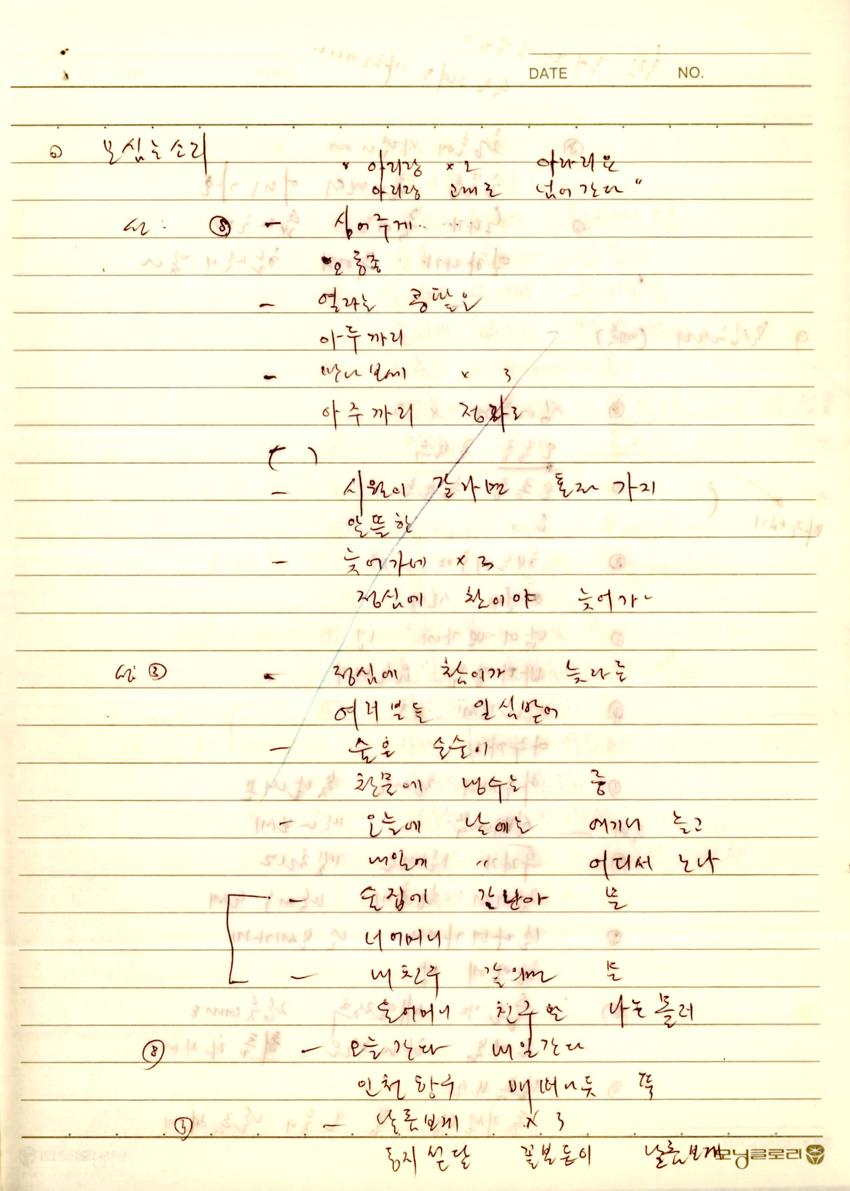 DATE NO.
모심는소리
" 아리랑 x2 아라리요
아리랑 고개로 넘어간다 "
선: ⑧ - 심어주게..
오종종
- 열라는 콩팥은
아주까리
- 만나보세 x 3
아주까리 정자로
( )
- 시월이 갈라면 혼자 가지
알뜰한
- 늦어가네 x3
정심에 참이야 늦어가~
선: ③ - 정심에 참이가 늦라는
여러분들 일심받어
- 술은 술술이
찬물에 냉수는 중
- 오늘에 날에는 여기니 놀고
내일에 〃 어디서 노나
- 술집에 갈란아
너어머니
- 내친구
친구면 나는 몰러
⑧ - 오늘간다 내일간다
인천항구 배떠나듯 뚝
③ - 날좀보게 x 3
동지섣달 꽃보듯이 날좀보게
모닝글로리